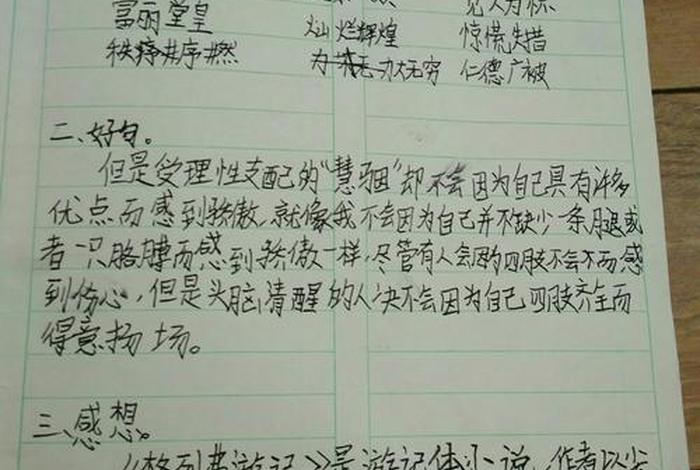 富丽堂皇 灿烂辉煌 惊慌失措
秩序井然 为 无 力大无穷 仁德广被
二、好句。
但是受理性支配的“慧骃”却不会因为自己具有许多
优点而感到骄傲,就像我不会因为自己并不缺少一条腿或
者一只胳膊而感到骄傲一样,尽管有人会因为四肢不全而感
到伤心,但是头脑清醒的人决不会因为自己四肢齐全而
得意扬扬。
三、感想。
《格列弗游记》是游记体小说,作者以